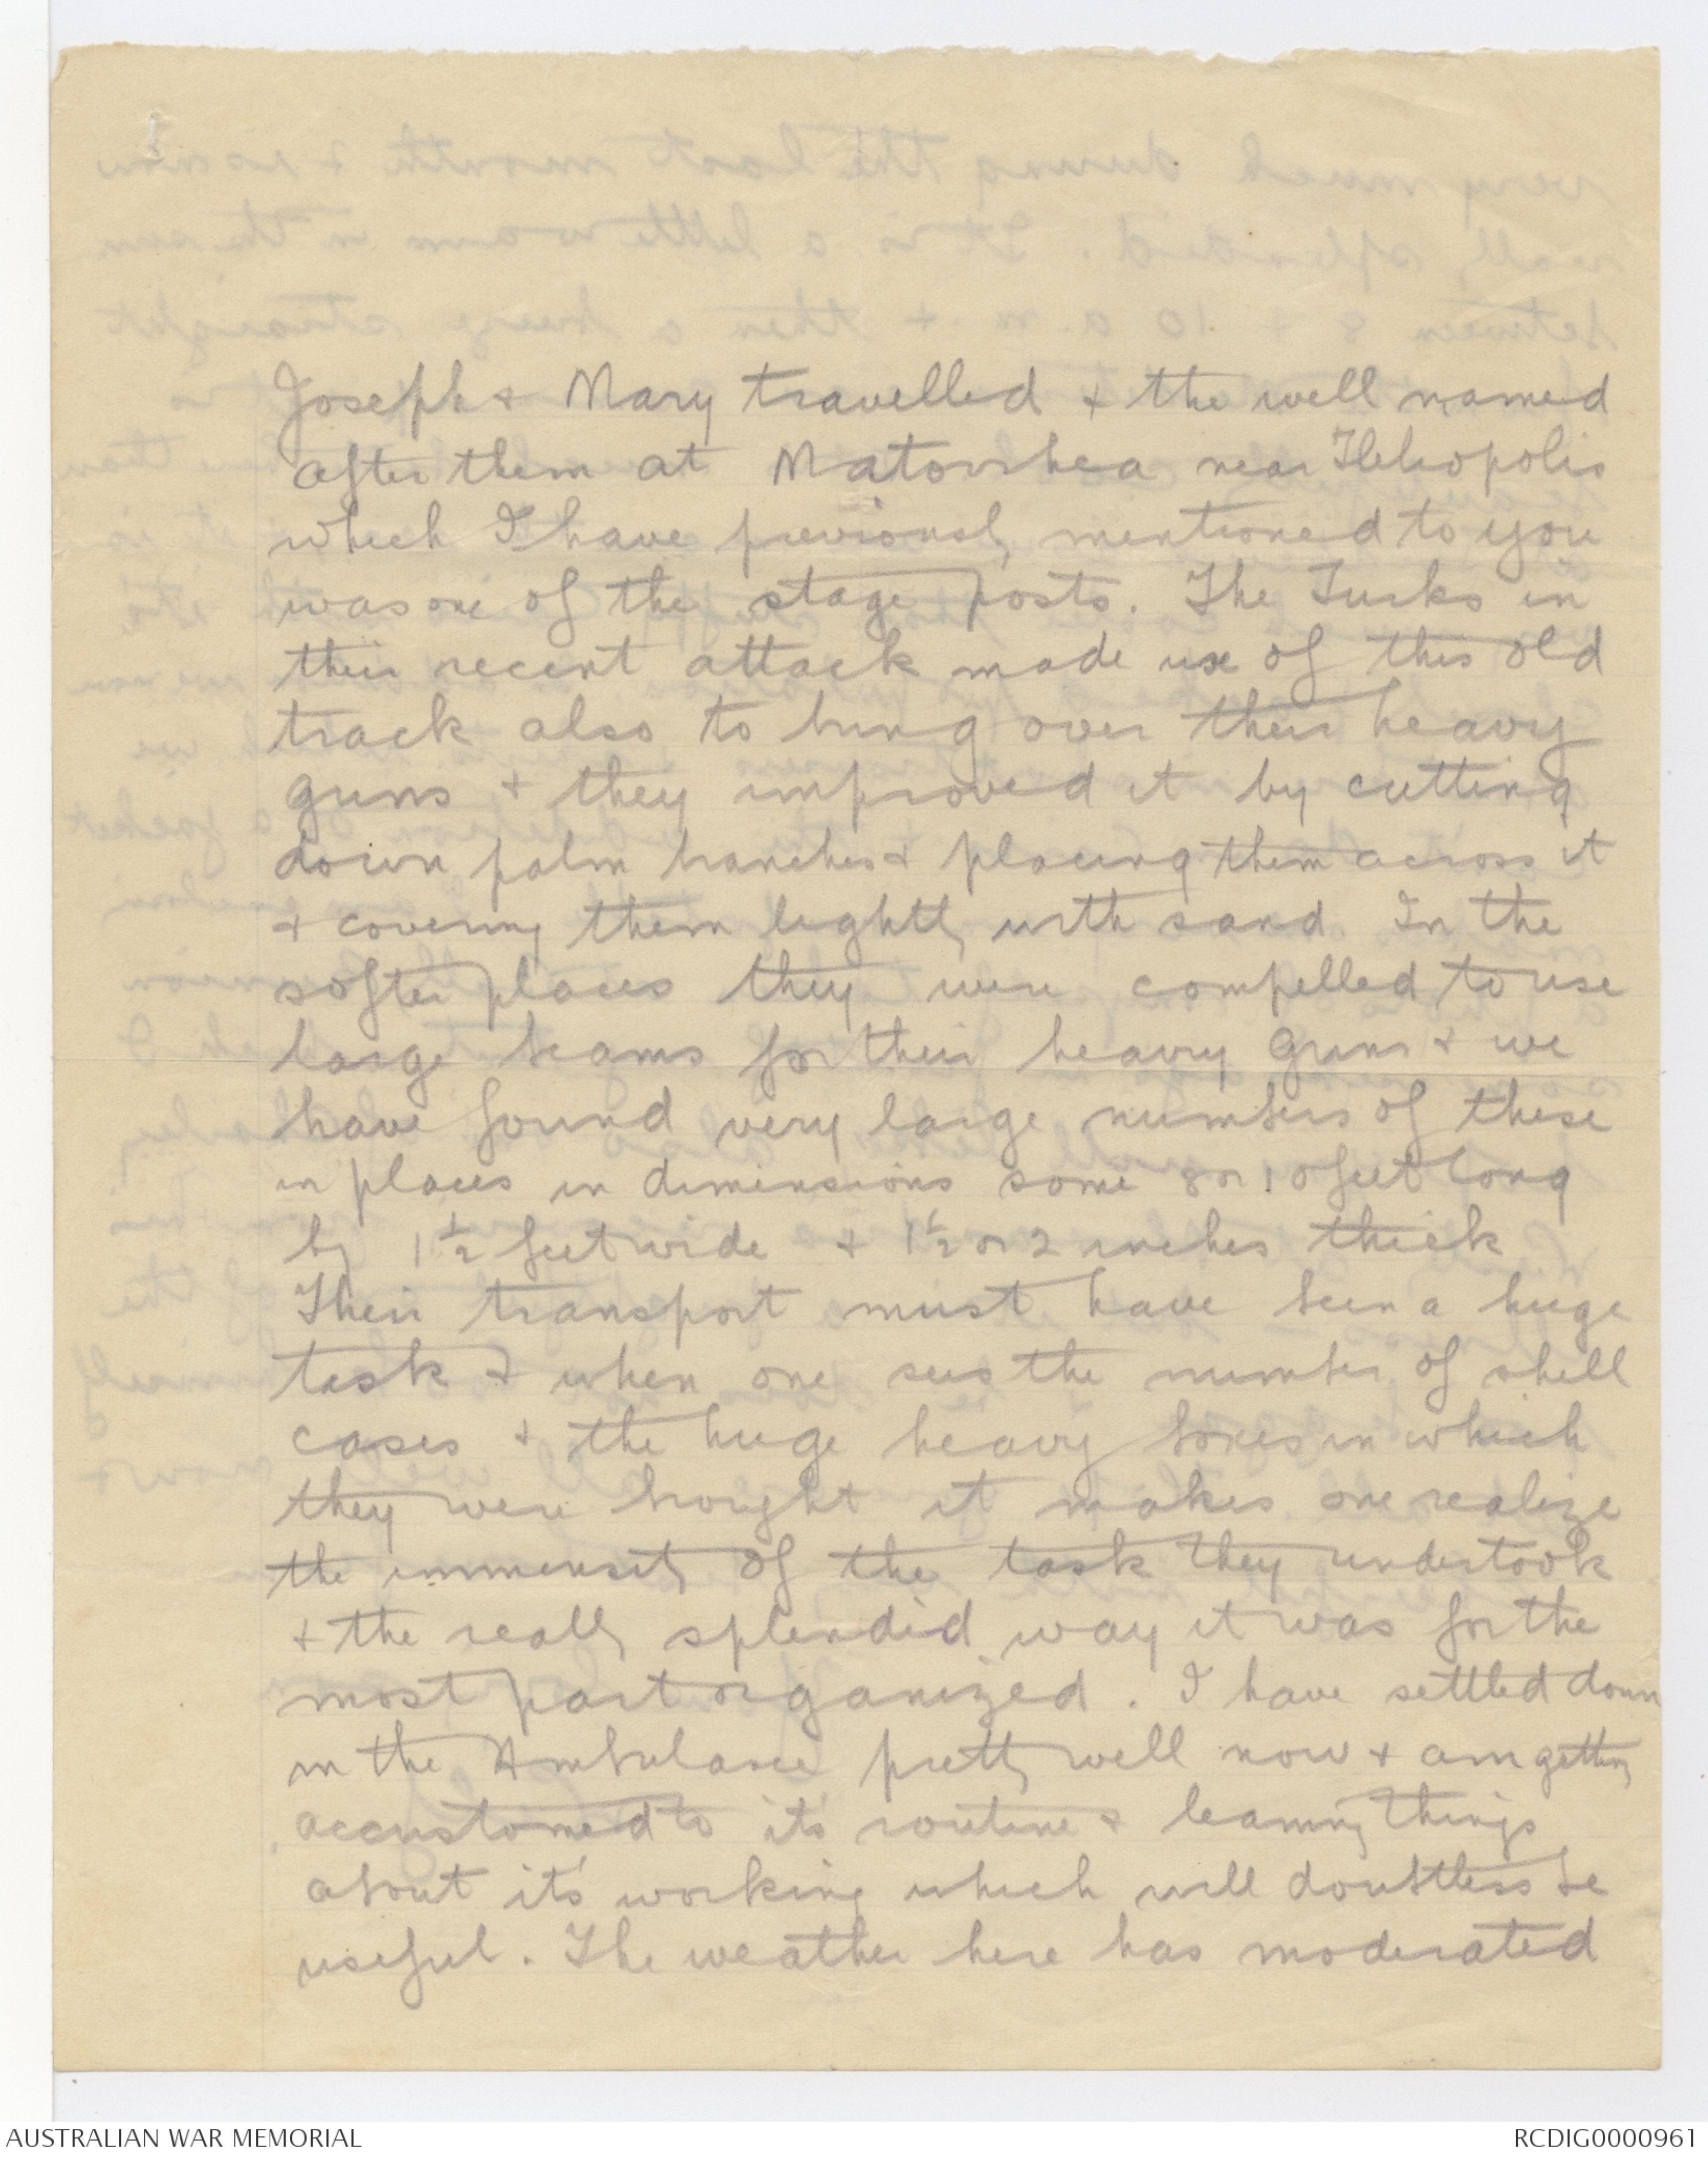 Joseph & Mary travelled & the well named
after them at Matorshea near Heliopolis
which I have previously mentioned to you
was one of the stage posts. The Turks in
their recent attack made use of this old
track also to bring over their heavy
guns & they improved it by cutting
down palm branches & placing them across it
& covering them lightly with sand. In the
softer places they were compelled to use
large beams for their heavy guns & we
have found very large numbers of these
in places in dimensions some 8 or 10 feet long
by 1½ feet wide & 1½ or 2 inches thick
Their transport must have been a huge
task & when one sees the number of shell
cases & the huge heavy boxes in which
they were brought it makes one realize
the immensity of the task they undertook
& the really splendid way it was for the
most part organized. I have settled down
in the Ambulance pretty well now & am getting
accustomed to it's routine & learning things
about it's working which will doubtless be
useful. The weather here has moderated
AUSTRALIAN WAR MEMORIAL
RCDIG0000961